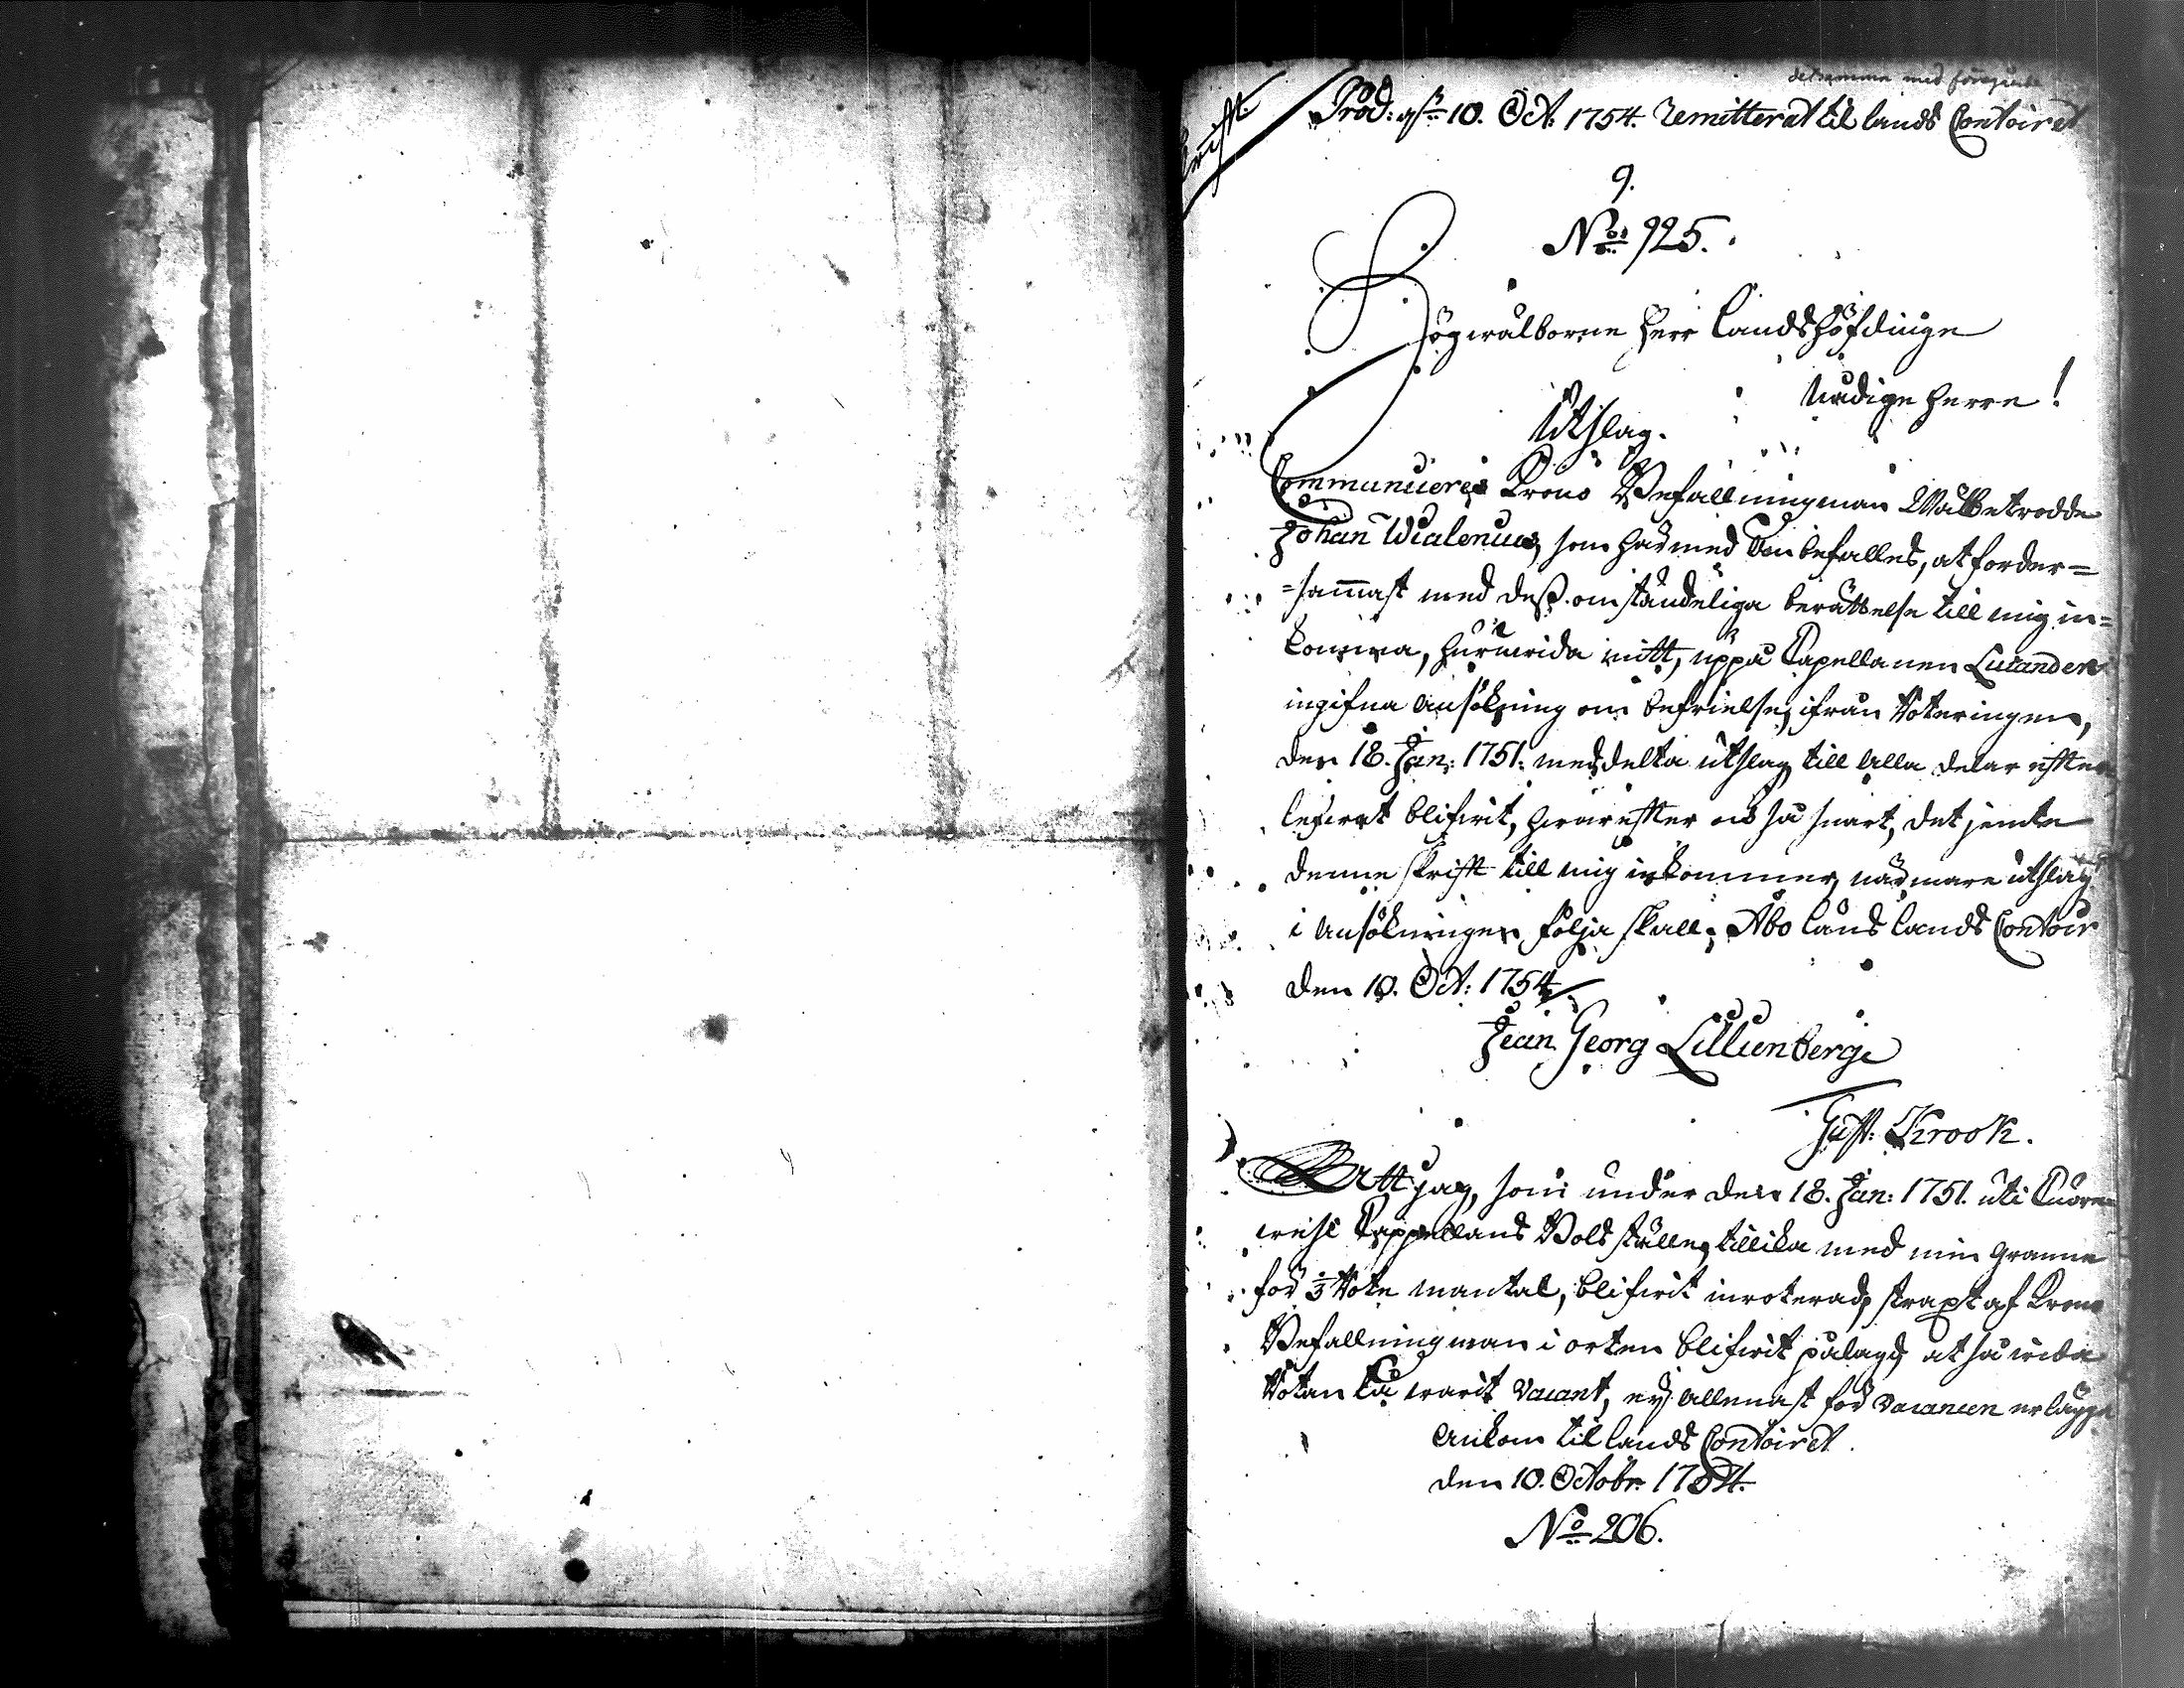 detsamma med föregående
Afskrift.
Prod: d 10. Oct: 1754. Remitterat til lands Contoiret
9.
No: 925.
Högwälborne Herr Landshöfdinge
Nådige Herre!
Utslag.
Communiceres Krono Befallningsman Wälbetrodde
Johan Widlenius, som härmed anbefalles, at forder=
=sammast med dess omständeliga berättelse till mig in=
komma, huruwida mitt, uppå Capellanen Lucander
ingifna ansökning om befrielse, ifrån Roteringen,
den 18. Jan: 1751. meddelta utslag till alla delar efter
lefwat blifwit, hwarefter och så snart, det jemte
denne skrift till mig inkommer, närmare utslag
i ansökningen följa skall; Åbo läns lands Contoir
den 10. Oct: 1754
Jean Georg Lillienberg
Gust: Krook.
Att jag, som under den 18. Jan: 1751. uti
Cappellans Bolställe, tillika med min granne
för 1/3 Rote mantal, blifwit inroterad, straxt af Krono
Befallningsman i orten blifwit pålagd, at så wida
Rotan då warit vacant, ej allenast för vacancen erlägga
Ankom til lands Contoiret.
den 10. Octobr: 1754.
No 206.